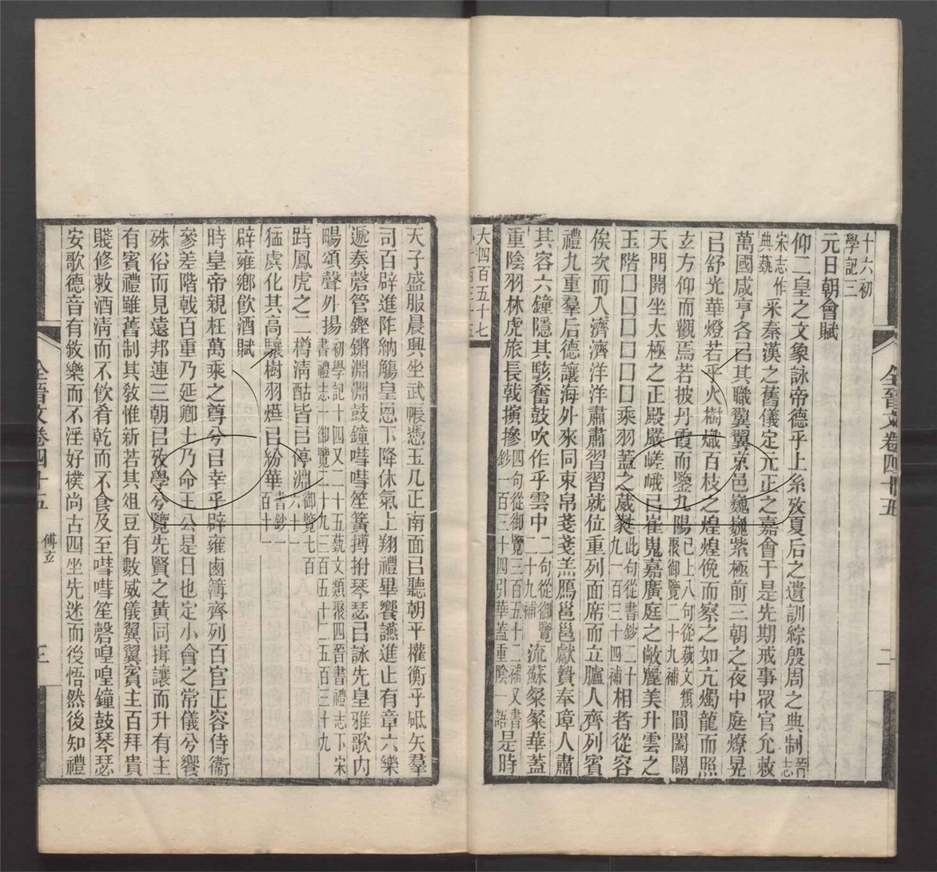 十六初學記三
元日朝會賦
仰二皇之文象詠帝德乎上系攷夏后之遺訓綜殷周之典制晉志宋志作典蓺
采秦漢之舊儀定元正之嘉會于是先期戒事眾官允敕
萬國咸亨各㠯其職翼翼京邑巍巍紫極前三朝之夜中庭燎晃
㠯舒光華燈若乎火樹熾百枝之煌煌俛而察之如亢燭龍而照
玄方仰而觀焉若披丹霞而鑒九陽已上八句從蓺文類聚御覽二十九補閶闔闢
天門開坐太極之正殿嚴嵯峨㠯崔嵬嘉廣庭之敞麗美升雲之
玉階囗囗囗囗囗囗乘羽蓋之葳蕤此句從書鈔二十九一百三十四補相者從容
俟次而入濟濟洋洋肅肅習習就位重列面席而立臚人齊列賓
禮九重羣后德讓海外來同束帛戔戔羔鴈邕邕獻贄奉璋人肅
其容六鐘隱其駭奮鼓吹作乎雲中二句從御覽二十九補流蘇粲粲華蓋
重陰羽林虎旅長戟摲摻四句從御覽三百五十二補又書鈔一百三十四引華蓋重陰一語是時
大四百五十七
全晉文卷四十五 二
天子盛服晨興坐武帳憑玉几正南面㠯聽朝平權衡乎砥矢羣
司百辟進阼納觴皇恩下降休氣上翔禮畢饗讌進止有章六樂
遞奏磬管鏗鏘淵淵鼓鐘嘒嘒笙簧搏拊琴瑟㠯詠先皇雅歌內
暘頌聲外揚初學記十四又二十五蓺文類聚四晉書禮志下宋書禮志一御覽二十九三百五十二五百三十九
跱鳳虎之二樽清酤皆㠯停淵御覽七百六十一
猛虎化其高驤樹羽㷼㠯紛華書鈔一百十
辟雍鄉飲酒賦
時皇帝親枉萬乘之尊兮㠯幸乎辟雍鹵簿齊列百官正容侍衞
參差階戟百重乃延卿士乃命王公是日也定小會之常儀兮饗
殊俗而見遠邦連三朝㠯攷學兮覽先賢之黃同揖讓而升有主
有賓禮雖舊制其敎惟新若其俎豆有數威儀翼翼賓主百拜貴
賤修敕酒清而不飲肴乾而不食及至嘒嘒笙磬喤喤鐘鼓琴瑟
安歌德音有敘樂而不淫好樸尚古四坐先迷而後悟然後知禮
全晉文卷四十五 傅玄 三